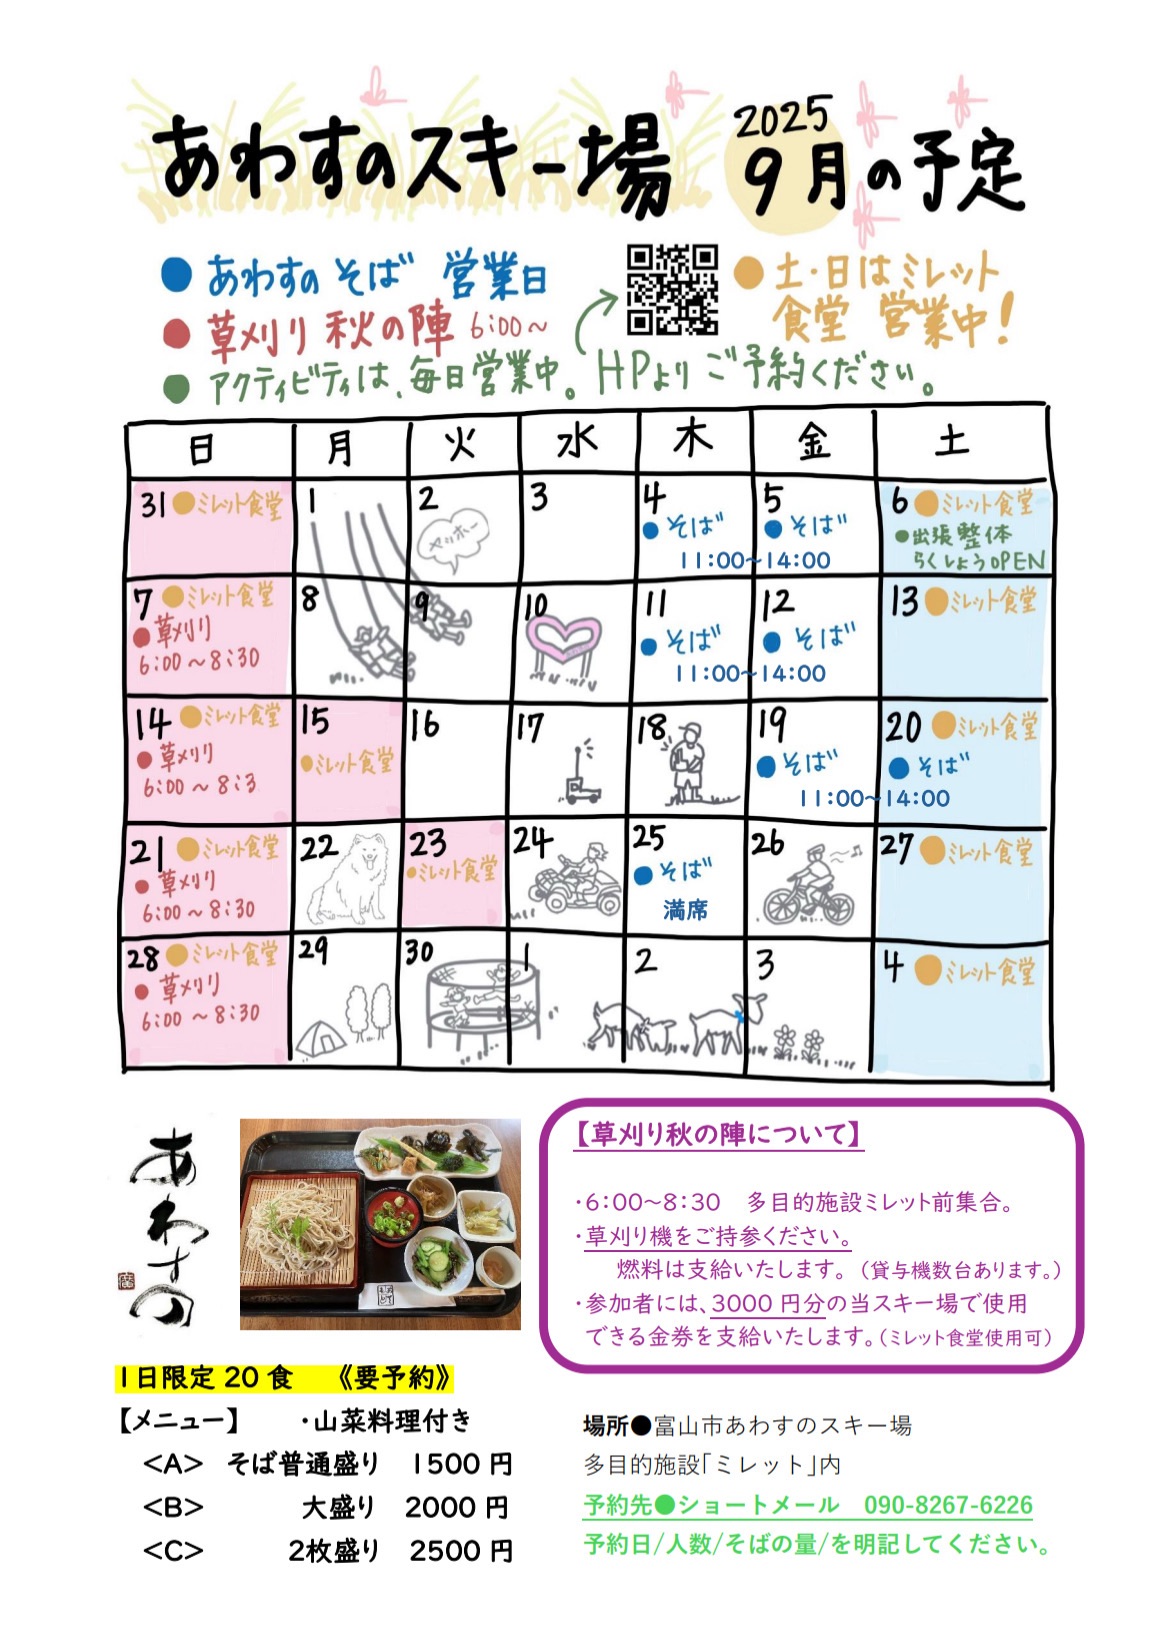 あわすのスキー場 2025 9月の予定
●あわすの そば 営業日
●草刈り 秋の陣 6:00～
●アクティビティは、毎日営業中。HPより ご予約ください。
●土・日はミレット
食堂 営業中!
日 月 火 水 木 金 土
31 ●ミレット食堂
1
2
ヤッホー
3
4
●そば
5
●そば
11:00～14:00
6 ●ミレット食堂
●出張整体
らくしょうOPEN
7 ●ミレット食堂
●草刈り
6:00～8:30
8
9
10
11
●そば
12
●そば
11:00～14:00
13 ●ミレット食堂
14 ●ミレット食堂
●草刈り
6:00～8:3
15
●ミレット食堂
16
17
18
19
●そば
20 ●ミレット食堂
●そば
11:00～14:00
21 ●ミレット食堂
●草刈り
6:00～8:30
22
23
●ミレット食堂
24
25
●そば
満席
26
27 ●ミレット食堂
28 ●ミレット食堂
●草刈り
6:00～8:30
29
30
1
2
3
4 ●ミレット食堂
あわすの
【草刈り秋の陣について】
・6:00～8:30 多目的施設ミレット前集合。
・草刈り機をご持参ください。
燃料は支給いたします。（貸与機数台あります。）
・参加者には、3000円分の当スキー場で使用
できる金券を支給いたします。（ミレット食堂使用可）
1日限定20食 《要予約》
【メニュー】 ・山菜料理付き
<A> そば普通盛り 1500円
<B> 大盛り 2000円
<C> 2枚盛り 2500円
場所●富山市あわすのスキー場
多目的施設「ミレット」内
予約先●ショートメール 090-8267-6226
予約日/人数/そばの量/を明記してください。